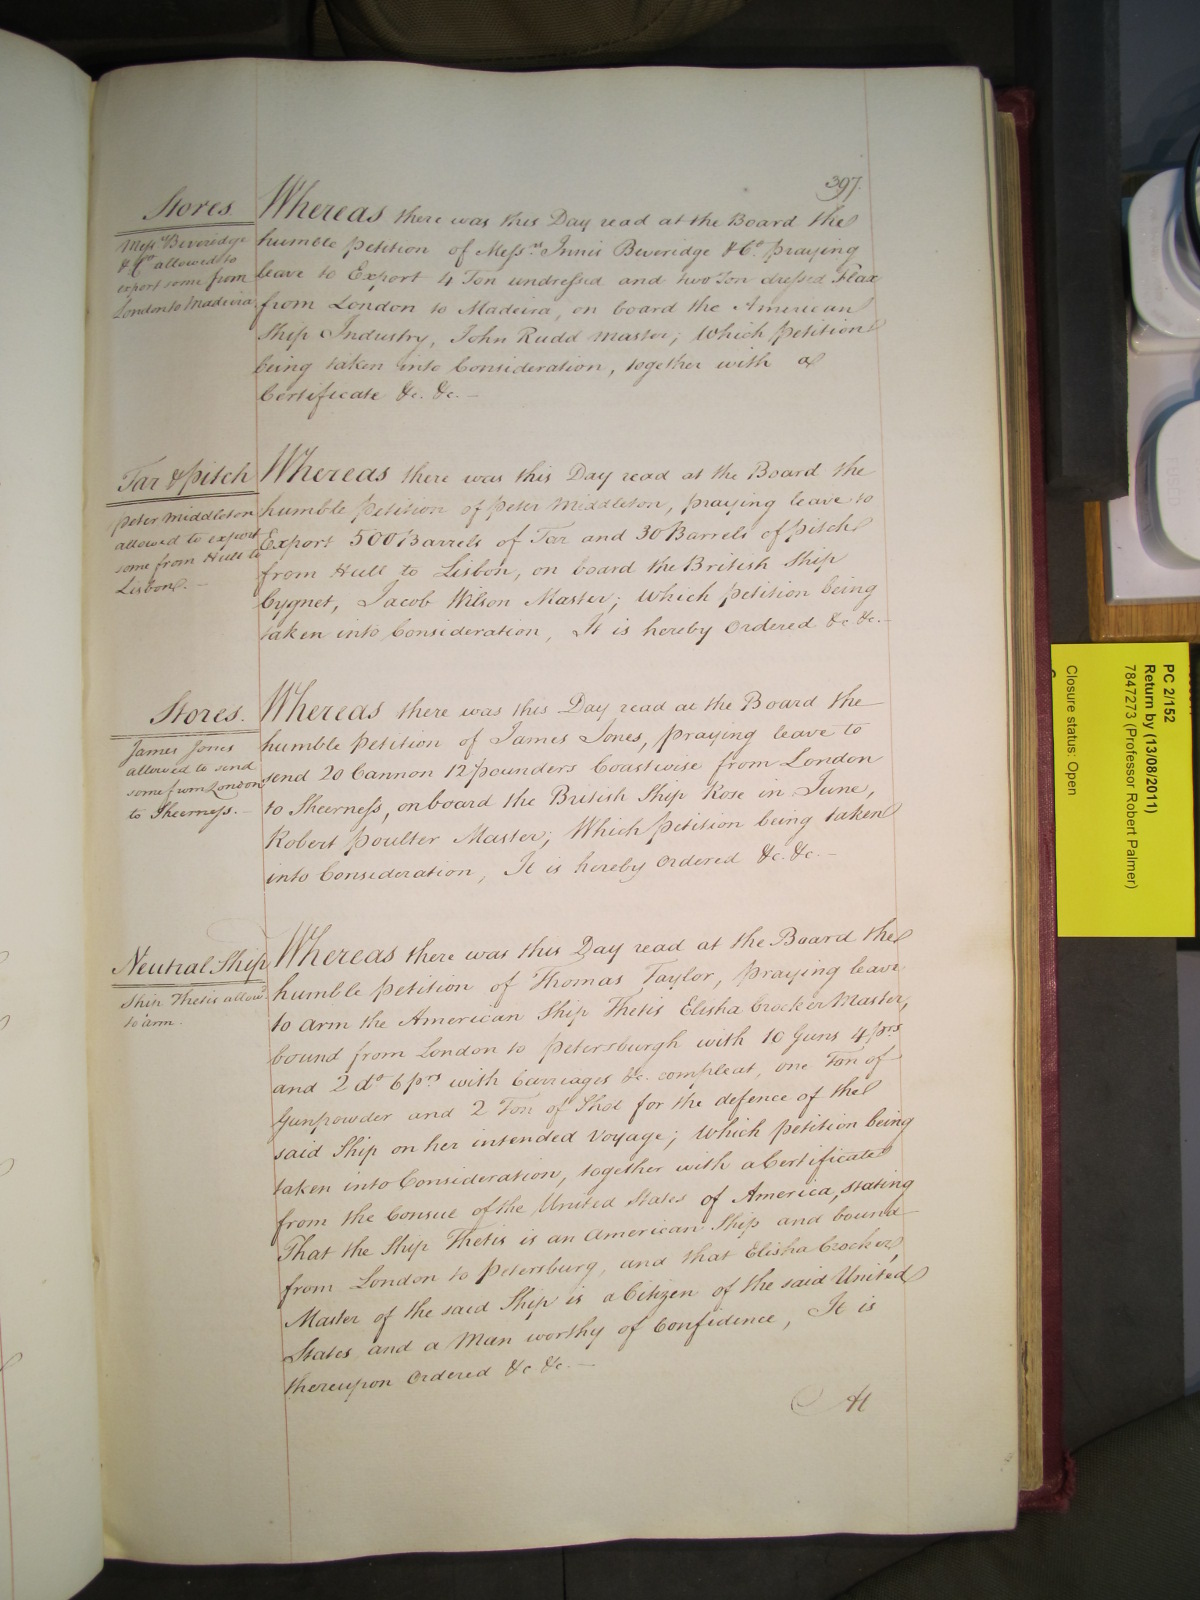 397.
Stores.
Messrs Beveridge
& Co allowed to
export some from
London to Madeira
Whereas there was this Day read at the Board the
humble Petition of Messrs Innis Beveridge & Co praying
leave to Export 4 Ton undressed and two Ton dressed Flax
from London to Madeira, on board the American
Ship Industry, John Rudd Master; Which Petition
being taken into Consideration, together with a
Certificate &c. &c. —
Tar & Pitch
Peter Middleton
allowed to export
some from Hull to
Lisbon. —
Whereas there was this Day read at the Board the
humble Petition of Peter Middleton, praying leave to
Export 500 Barrels of Tar and 30 Barrels of Pitch
from Hull to Lisbon, on board the British Ship
Cygnet, Jacob Wilson Master; Which Petition being
taken into Consideration, It is hereby Ordered &c &c. —
Stores.
James Jones
allowed to send
some from London
to Sheerness. —
Whereas there was this Day read at the Board the
humble Petition of James Jones, praying leave to
send 20 Cannon 12 pounders Coastwise from London
to Sheerness, on board the British Ship Rose in June,
Robert Poulter Master; Which Petition being taken
into Consideration, It is hereby Ordered &c. &c. —
Neutral Ship
Ship Thetis allowd
to arm.
Whereas there was this Day read at the Board the
humble Petition of Thomas Taylor, praying leave
to arm the American Ship Thetis Elisha Crocker Master,
bound from London to Petersburgh with 10 Guns 4 prs
and 2 do 6 prs with Carriages &c. compleat, one Ton of
Gunpowder and 2 Ton of Shot for the defence of the
said Ship on her intended Voyage; Which Petition being
taken into Consideration, together with a Certificate
from the Consul of the United States of America, stating
That the Ship Thetis is an American Ship and bound
from London to Petersburg, and that Elisha Crocker,
Master of the said Ship is a Citizen of the said United
States and a Man worthy of Confidence, It is
thereupon Ordered &c &c. —
At
PC 2/152
Return by (13/08/2011)
7847273 (Professor Robert Palmer)
Closure status: Open